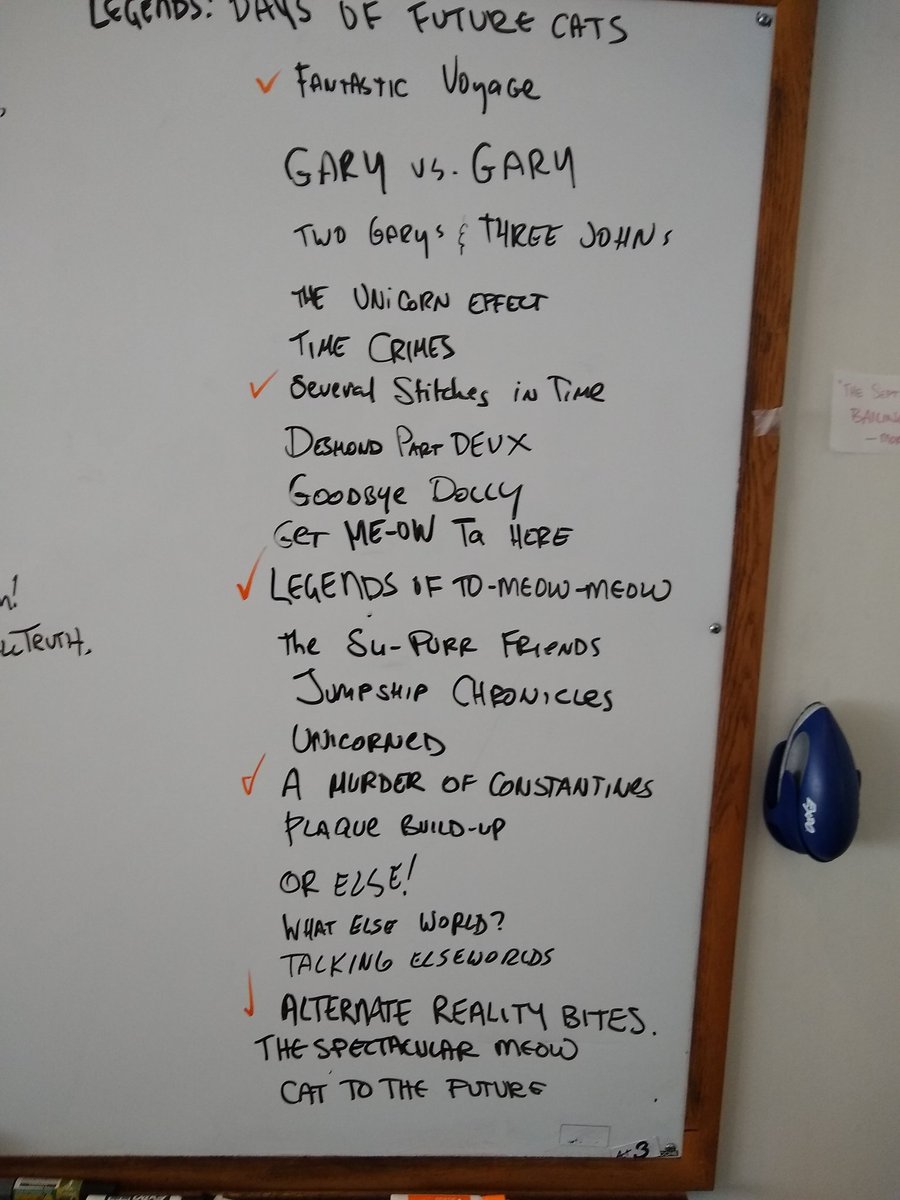 LEGENDS: DAYS OF FUTURE CATS
FANTASTIC VOYAGE
GARY VS. GARY
TWO GARYS & THREE JOHNS
THE UNICORN EFFECT
TIME CRIMES
Several Stitches in Time
DESMOND PART DEUX
GOODBYE DOLLY
GET ME-OW Ta HERE
LEGENDS OF TO-MEOW-MEOW
THE SU-PURR FRIENDS
JUMPSHIP CHRONICLES
UNICORNED
A MURDER OF CONSTANTINES
PLAQUE BUILD-UP
OR ELSE!
WHAT ELSE WORLD?
TALKING ELSEWORLDS
ALTERNATE REALITY BITES.
THE SPECTACULAR MEOW
CAT TO THE FUTURE
TRUTH.
"THE
3
EXPO